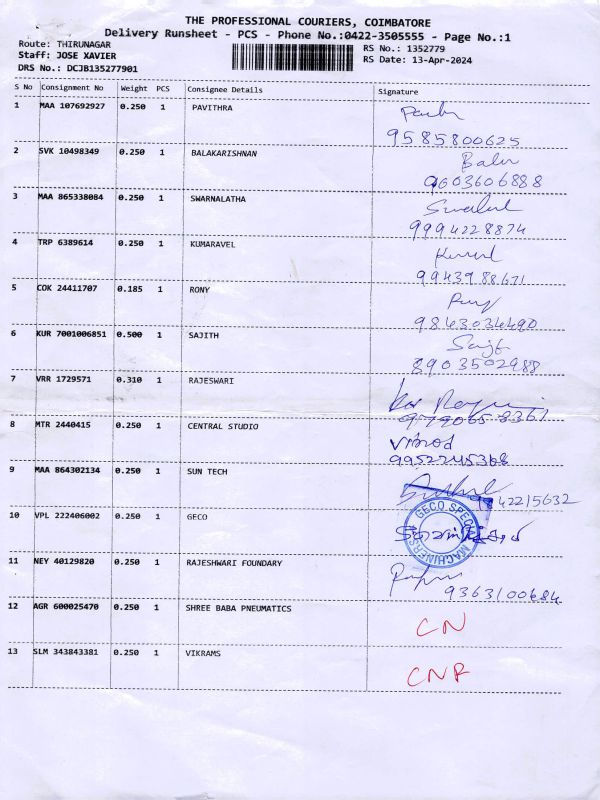 THE PROFESSIONAL COURIERS, COIMBATORE
Delivery Runsheet - PCS - Phone No.:0422-3505555 - Page No.:1
Route: THIRUNAGAR
RS No.: 1352779
Staff: JOSE XAVIER
RS Date: 13-Apr-2024
DRS No.: DCJB135277901
S No Consignment No Weight PCS Consignee Details Signature
1 MAA 107692927 0.250 1 PAVITHRA
9585800625
2 SVK 10498349 0.250 1 BALAKARISHNAN
9603606888
3 MAA 865338084 0.250 1 SWARNALATHA
9994228874
4 TRP 6389614 0.250 1 KUMARAVEL
9943988671
5 COK 24411707 0.185 1 RONY
9843034490
6 KUR 7001006851 0.500 1 SAJITH
8903502988
7 VRR 1729571 0.310 1 RAJESWARI
8 MTR 2440415 0.250 1 CENTRAL STUDIO
Vinod
9952245368
9 MAA 864302134 0.250 1 SUN TECH
9842215632
10 VPL 222406002 0.250 1 GECO
GECO SPECI MACHINERS
11 NEY 40129820 0.250 1 RAJESHWARI FOUNDARY
9363100684
12 AGR 600025470 0.250 1 SHREE BABA PNEUMATICS
CN
13 SLM 343843381 0.250 1 VIKRAMS
CNR